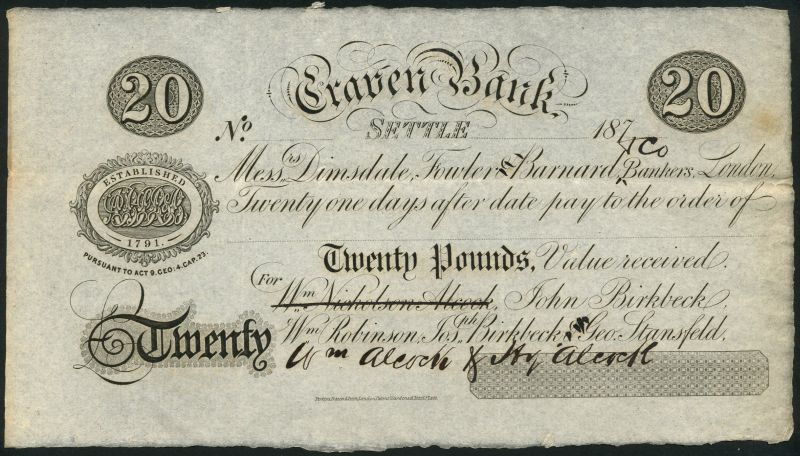 20 Craven Bank. 20
No. SETTLE 187
Messrs Dimsdale, Fowler & Barnard, & Co Bankers, London.
ESTABLISHED
1791.
PURSUANT TO ACT 9. GEO: 4. CAP. 23.
Twenty one days after date pay to the order of
Twenty Pounds, Value received.
For
Wm Nicholson Alcock, John Birkbeck
Wm Robinson, Josph Birkbeck, Geo: Stansfeld.
£Twenty
Wm Alcock & Hy Alcock